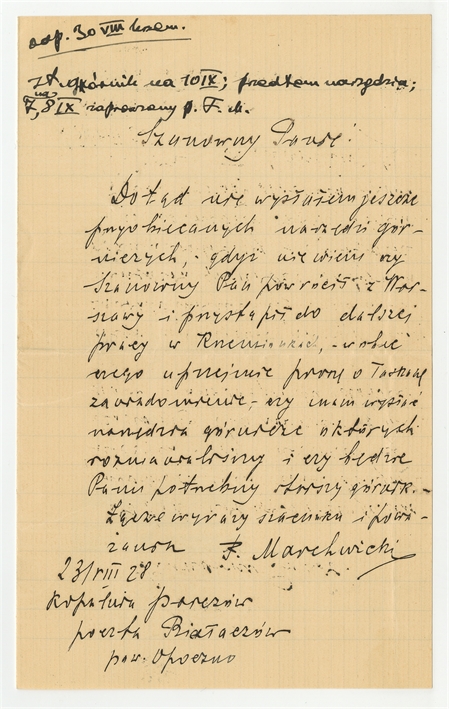 odp. 30 VIII
górnik na 10 IX; przedtem narzędzia;
na
7, 8 IX zaproszony p. F. M.
Szanowny Panie!
Dotąd nie wysłałem jeszcze
przyobiecanych narzędzi gór-
niczych, gdyż nie wiem czy
Szanowny Pan powrócił z War-
szawy i przystąpił do dalszej
pracy w - wobec
czego uprzejmie proszę o łaskawe
zawiadomienie, czy mam wysłać
narzędzia górnicze o których
rozmawialiśmy i czy będzie
Panu potrzebny starszy górnik.-
Łączę wyrazy szacunku i powa-
żania F. Marchwicki
23/VIII 28
Kopalnia Parczów
poczta Białaczów
pow. Opoczno